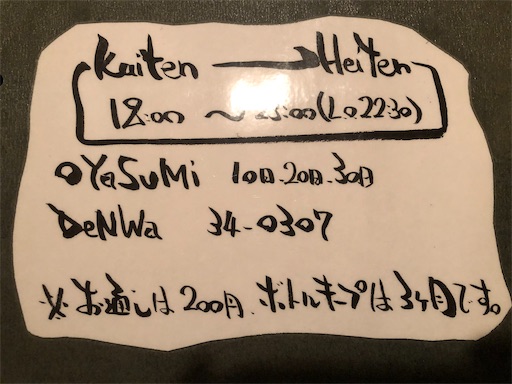 Kaiten → HeiTen
18:00 〜 23:00(L.O 22:30)
OYaSuMi 10日.20日.30日
DeNWa 34-0307
※ お通しは 200円. ボトルキープは 3ヶ月です。